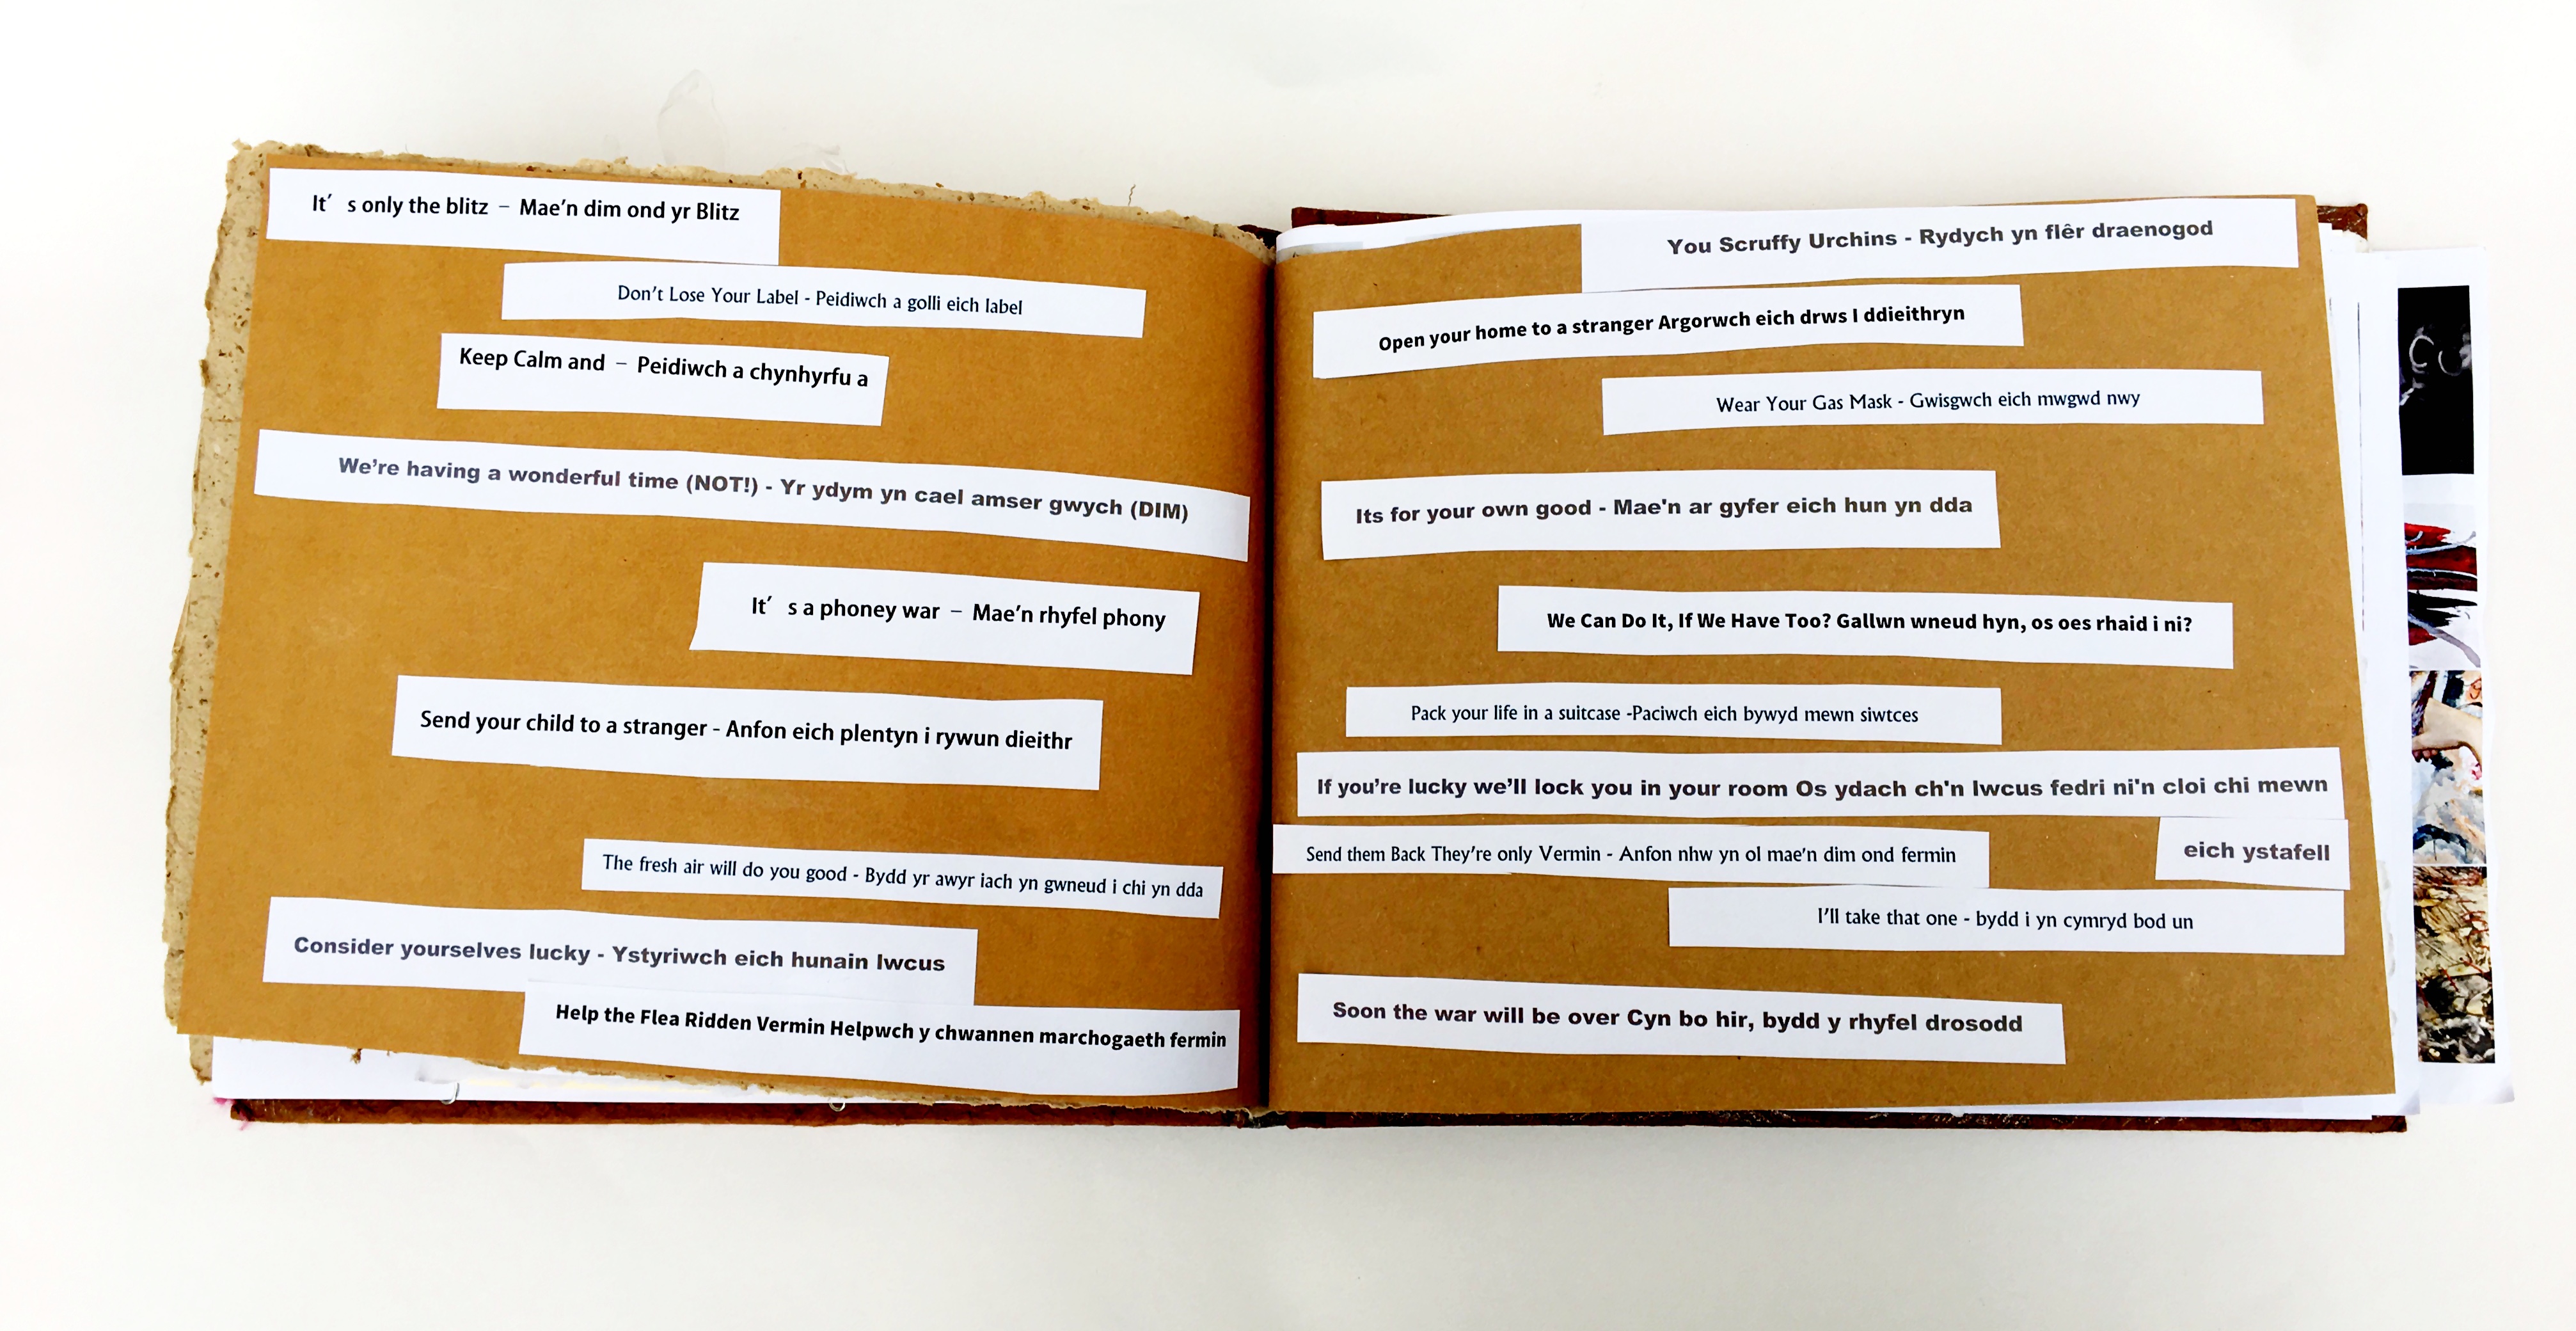 It's only the blitz – Mae'n dim ond yr Blitz
Don't Lose Your Label - Peidiwch a golli eich label
Keep Calm and – Peidiwch a chynhyrfu a
We're having a wonderful time (NOT!) - Yr ydym yn cael amser gwych (DIM)
It's a phoney war – Mae'n rhyfel phony
Send your child to a stranger - Anfon eich plentyn i rywun dieithr
The fresh air will do you good - Bydd yr awyr iach yn gwneud i chi yn dda
Consider yourselves lucky - Ystyriwch eich hunain lwcus
Help the Flea Ridden Vermin Helpwch y chwannen marchogaeth fermin
You Scruffy Urchins - Rydych yn flêr draenogod
Open your home to a stranger Argorwch eich drws I ddieithryn
Wear Your Gas Mask - Gwisgwch eich mwgwd nwy
Its for your own good - Mae'n ar gyfer eich hun yn dda
We Can Do It, If We Have Too? Gallwn wneud hyn, os oes rhaid i ni?
Pack your life in a suitcase -Paciwch eich bywyd mewn siwtces
If you're lucky we'll lock you in your room Os ydach ch'n lwcus fedri ni'n cloi chi mewn
eich ystafell
Send them Back They're only Vermin - Anfon nhw yn ol mae'n dim ond fermin
I'll take that one - bydd i yn cymryd bod un
Soon the war will be over Cyn bo hir, bydd y rhyfel drosodd